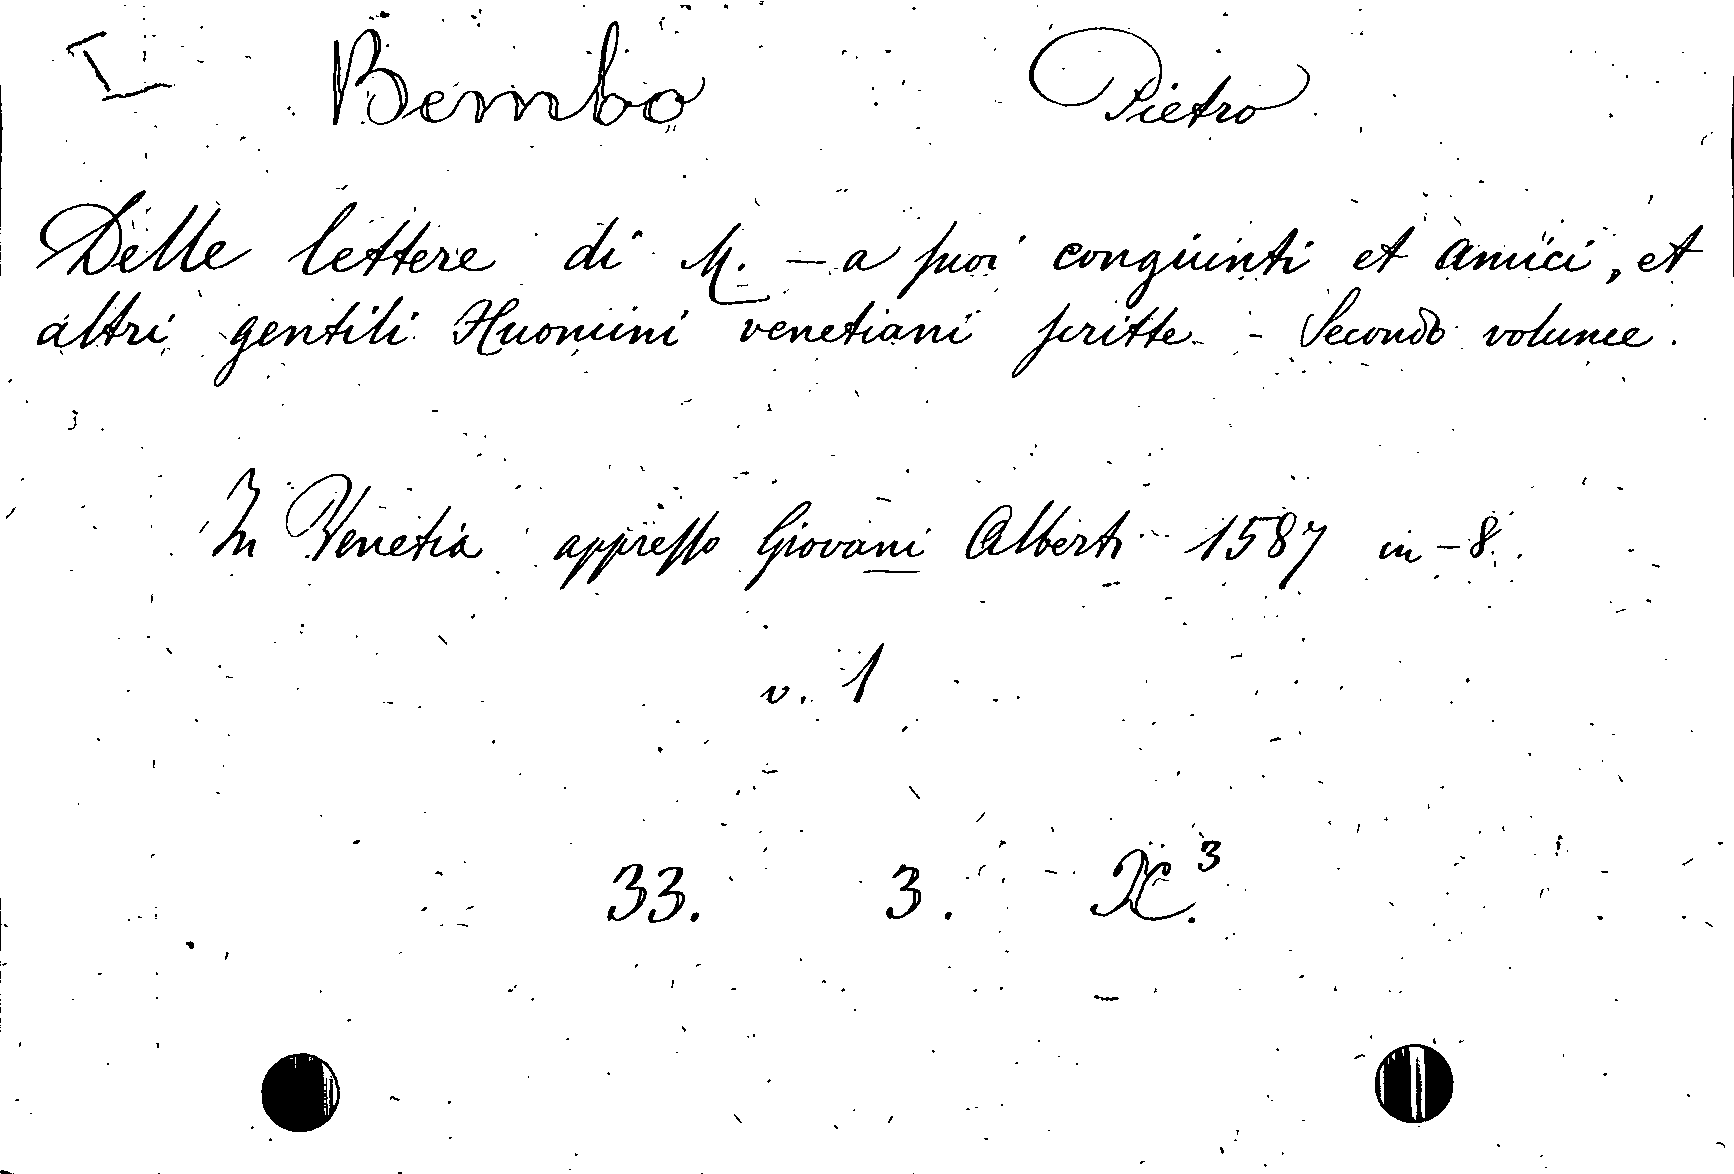 I Bembo Pietro
Delle lettere di M. — a suoi congiuinti et amici, et
altri gentili Huomini venetiani scritte - Secondo volume.
In Venetia appresso Giovani Alberti 1587 in-8.
v. 1
33. 3. K.³